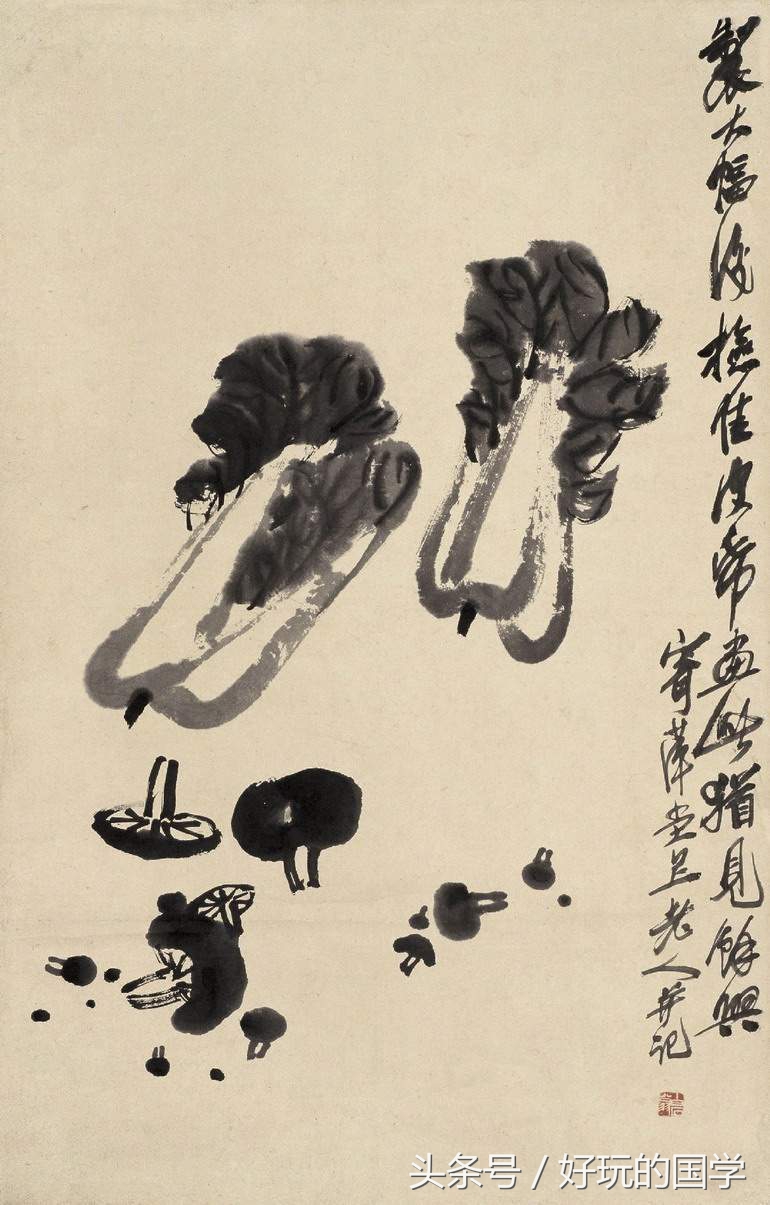 製大幅後佳帋畫此猶見餘興
寄萍堂上老人并記
头条号 / 好玩的国学